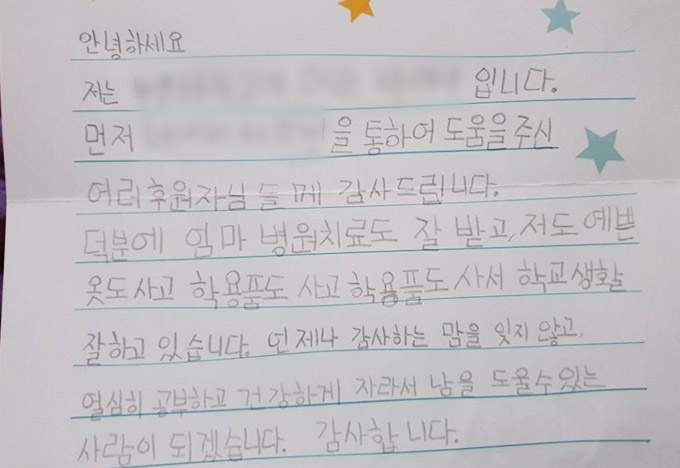 안녕하세요
저는 입니다.
먼저 을 통하여 도움을 주신
여러 후원자님 들 께 감사드립니다.
덕분에 엄마 병원치료도 잘 받고, 저도 예쁜
옷도 사고 학용품도 사고 학용품도 사서 학교생활
잘하고 있습니다. 언제나 감사하는 맘을 잊지 않고,
열심히 공부하고 건강하게 자라서 남을 도울수 있는
사람이 되겠습니다. 감사합니다.